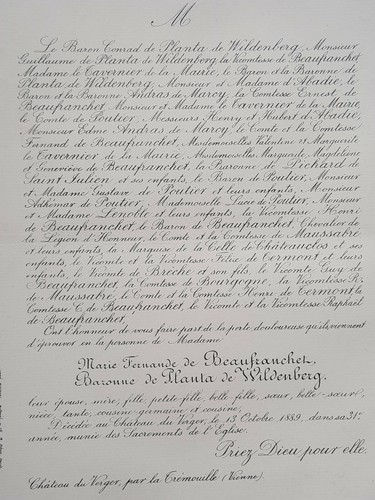 M
Le Baron Conrad de Planta de Wildenberg, Monsieur
Guillaume de Planta de Wildenberg, la Vicomtesse de Beaufranchet,
Madame le Tavernier de la Mairie, le Baron et la Baronne de
Planta de Wildenberg, Monsieur et Madame d'Abadie, le
Baron et la Baronne Andras de Marcy, la Comtesse Ernest de
Beaufranchet, Monsieur et Madame le Tavernier de la Mairie,
le Comte de Poutier, Messieurs Henry et Hubert d'Abadie,
Monsieur Edme Andras de Marcy, le Comte et la Comtesse
Fernand de Beaufranchet, Mesdemoiselles Valentine et Marguerite
le Tavernier de la Mairie, Mesdemoiselles Marguerite, Magdeleine
et Geneviève de Beaufranchet, la Baronne de Lichard de
Saint-Julien et ses enfants, le Baron de Poutier, Monsieur
et Madame Gustave de Poutier et leurs enfants, Monsieur
de Poutier, Mademoiselle Lucie de Poutier, Monsieur
et Madame Lenoble et leurs enfants, la Vicomtesse Henri
de Beaufranchet, le Baron de Beaufranchet, Chevalier de
la Légion d'Honneur, le Comte et la Comtesse de Maussabré
et leurs enfants, la Marquise de la Celle de Châteauclos et ses
enfants, le Vicomte et la Vicomtesse Félix de Cermont et leurs
enfants, le Vicomte de Brèche et son fils, le Vicomte Guy de
Beaufranchet, la Comtesse de Bourgogne, la Vicomtesse R.
de Maussabré, le Comte et la Comtesse Henri de Cermont, la
Comtesse C. de Beaufranchet, le Vicomte et la Vicomtesse Raphaël
de Beaufranchet,
Ont l'honneur de vous faire part de la perte douloureuse qu'ils viennent
d'éprouver, en la personne de Madame
Marie Fernande de Beaufranchet,
Baronne de Planta de Wildenberg,
leur épouse, mère, fille, petite-fille, belle-fille, sœur, belle-sœur,
nièce, tante, cousine-germaine et cousine,
Décédée au Château du Verger, le 13 Octobre 1889, dans sa 31e
année, munie des Sacrements de l'Église.
Priez Dieu pour elle.
Château du Verger, par la Trémouille (Vienne).